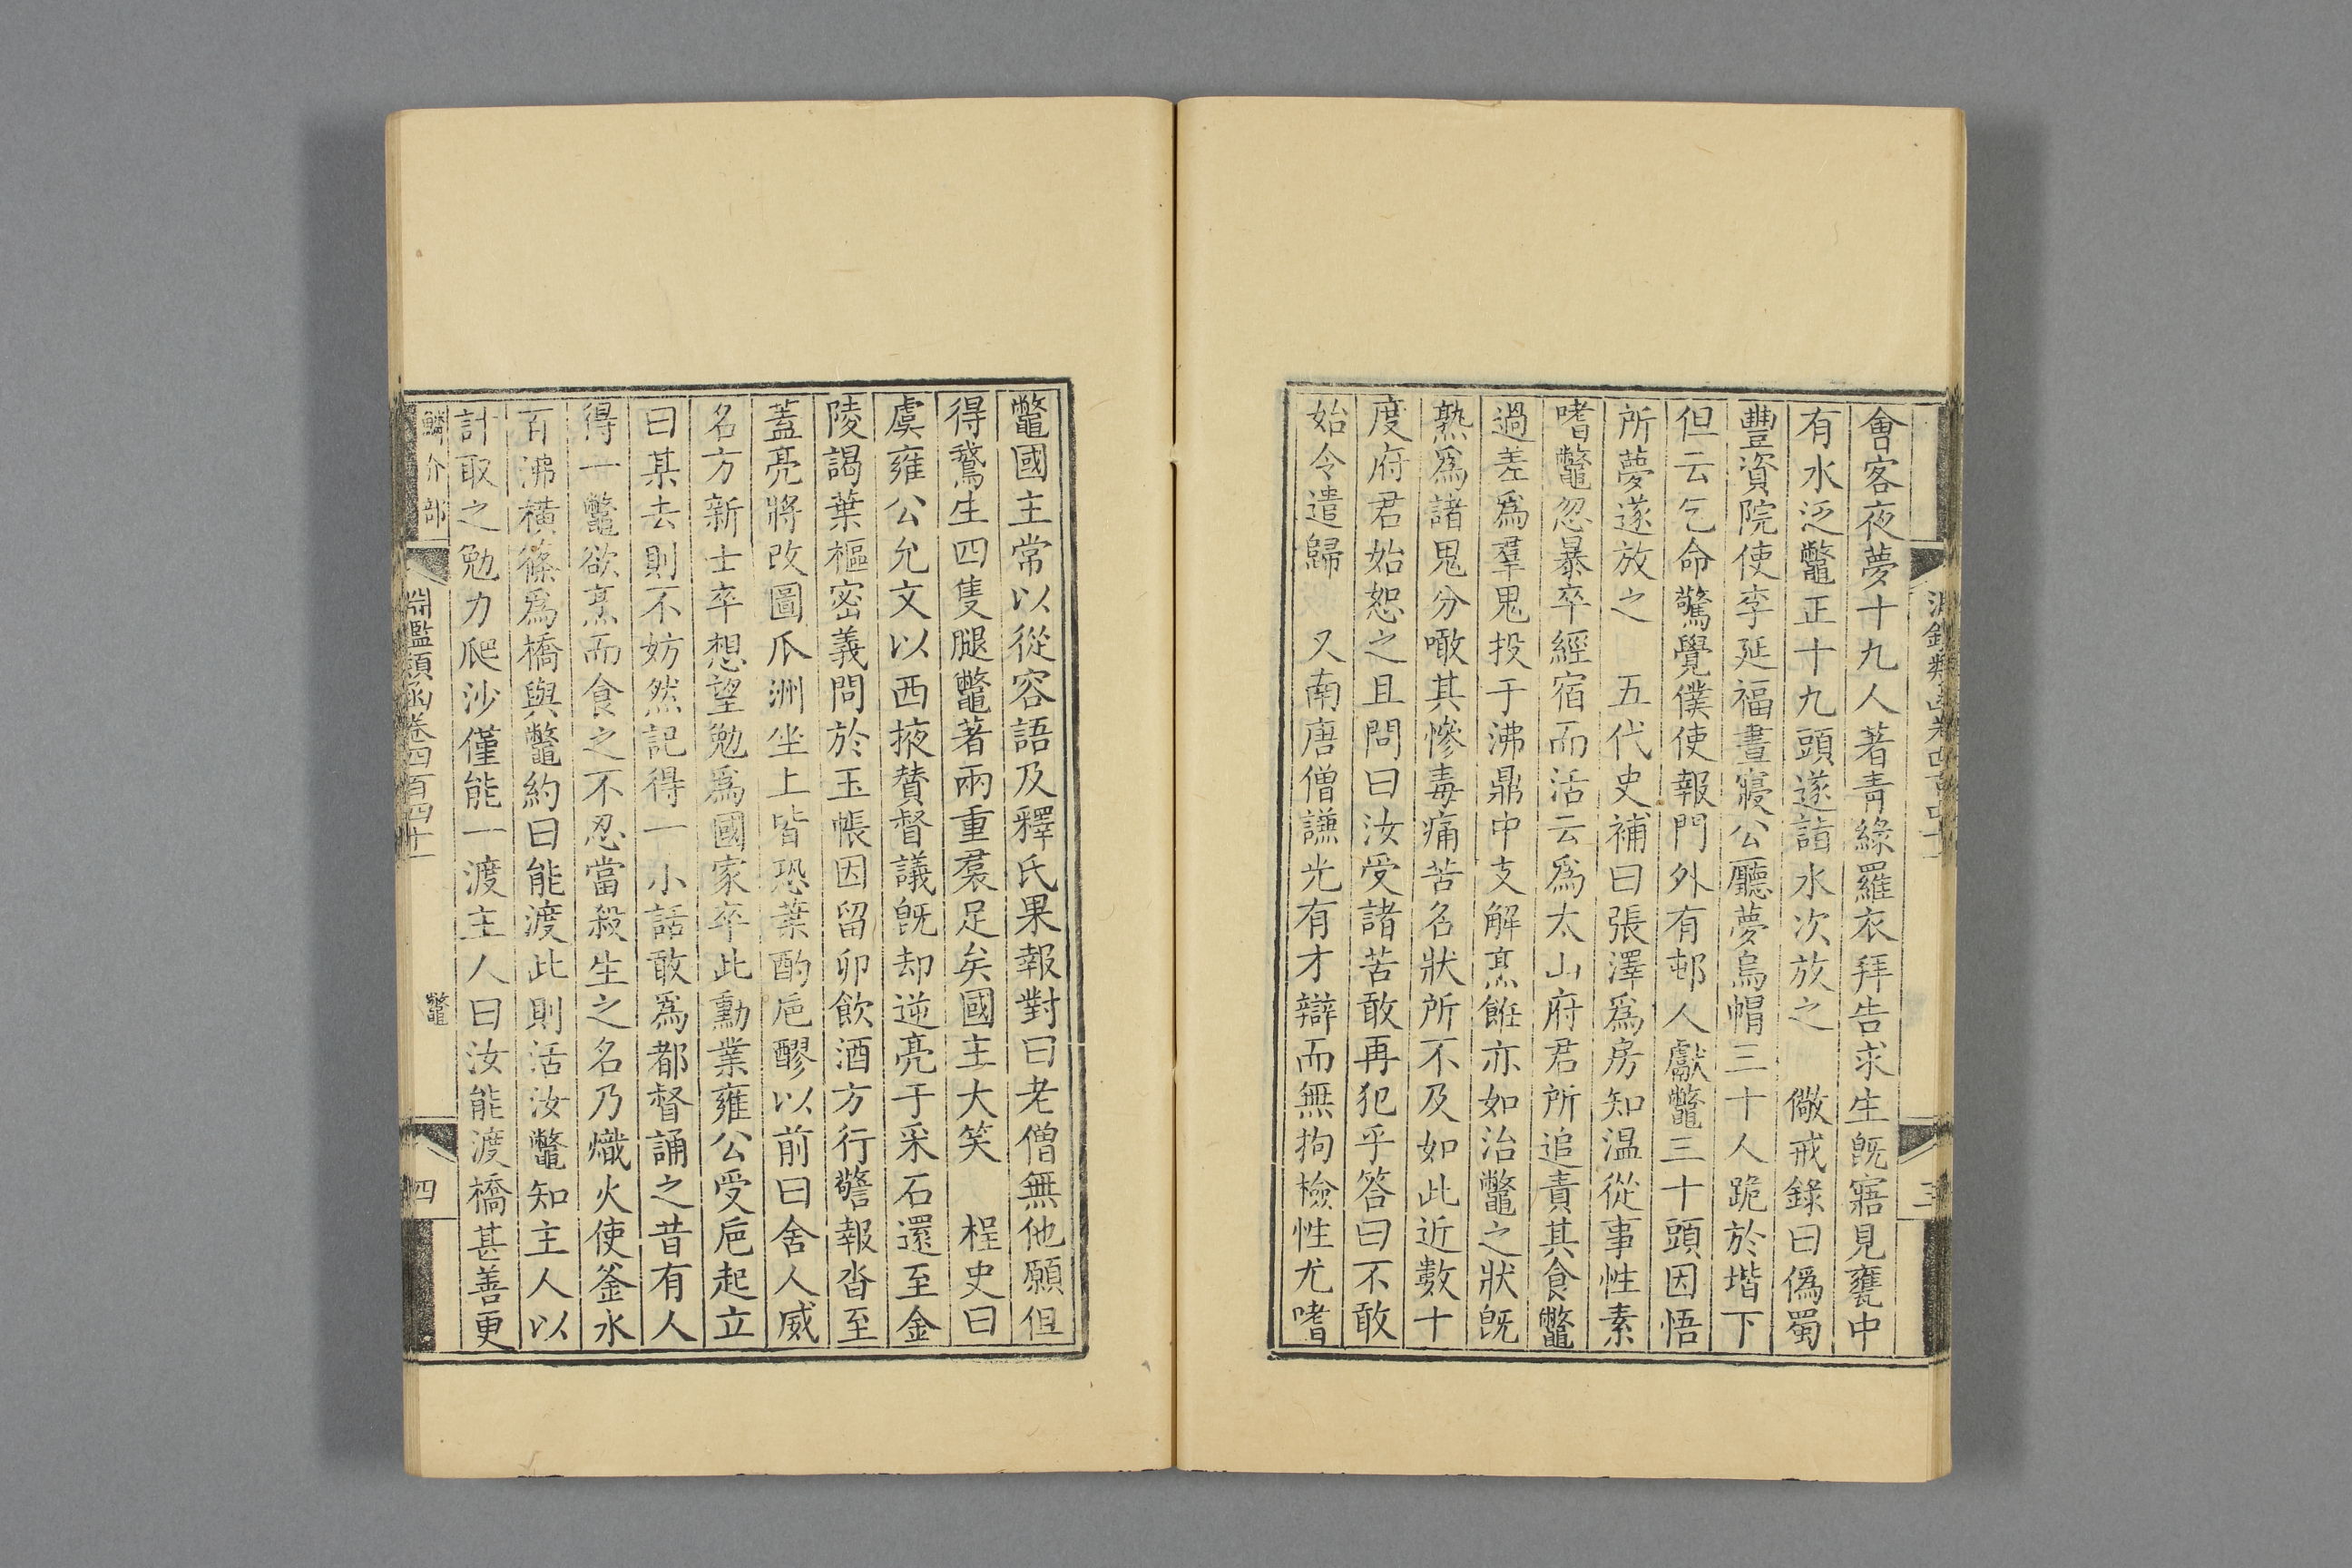 會客夜夢十九人著青綠羅衣拜告求生旣寤見甕中
有水泛鼈正十九頭遂詣水次放之　儆戒錄曰僞蜀
豐資院使李延福晝寢公廳夢烏帽三十人跪於堦下
但云乞命驚覺僕使報門外有邨人獻鼈三十頭因悟
所夢遂放之　五代史補曰張澤爲房知温從事性素
嗜鼈忽暴卒經宿而活云爲太山府君所追責其食鼈
過差爲羣鬼投于沸鼎中支解烹飪亦如治鼈之狀旣
熟爲諸鬼分噉其慘毒痛苦名狀所不及如此近數十
度府君始恕之且問曰汝受諸苦敢再犯乎答曰不敢
始令遣歸　又南唐僧謙光有才辯而無拘檢性尤嗜
鼈國主常以從容語及釋氏果報對曰老僧無他願但
得鵞生四隻腿鼈著兩重裠足矣國主大笑　桯史曰
虞雍公允文以西掖賛督議旣却逆亮于采石還至金
陵謁葉樞密義問於玉帳因留卯飲酒方行警報沓至
蓋亮將改圖瓜洲坐上皆恐葉酌巵醪以前曰舍人威
名方新士卒想望勉爲國家卒此勳業雍公受巵起立
曰某去則不妨然記得一小話敢爲都督誦之昔有人
得一鼈欲烹而食之不忍當殺生之名乃熾火使釜水
百沸橫篠爲橋與鼈約曰能渡此則活汝鼈知主人以
計取之勉力爬沙僅能一渡主人曰汝能渡橋甚善更
鱗介部　淵鑑類函卷四百四十一　鼈　四